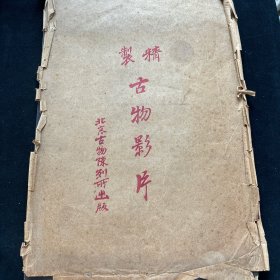 精製
古物影片
北京古物陳列所出版